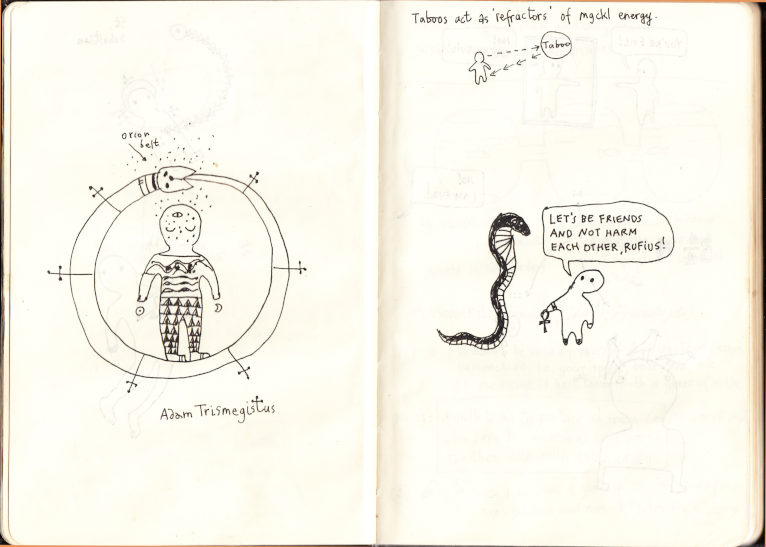 orion
belt
Adam Trismegistus
Taboos act as 'refractors' of mgckl energy.
Taboo
LET'S BE FRIENDS
AND NOT HARM
EACH OTHER, RUFIUS!